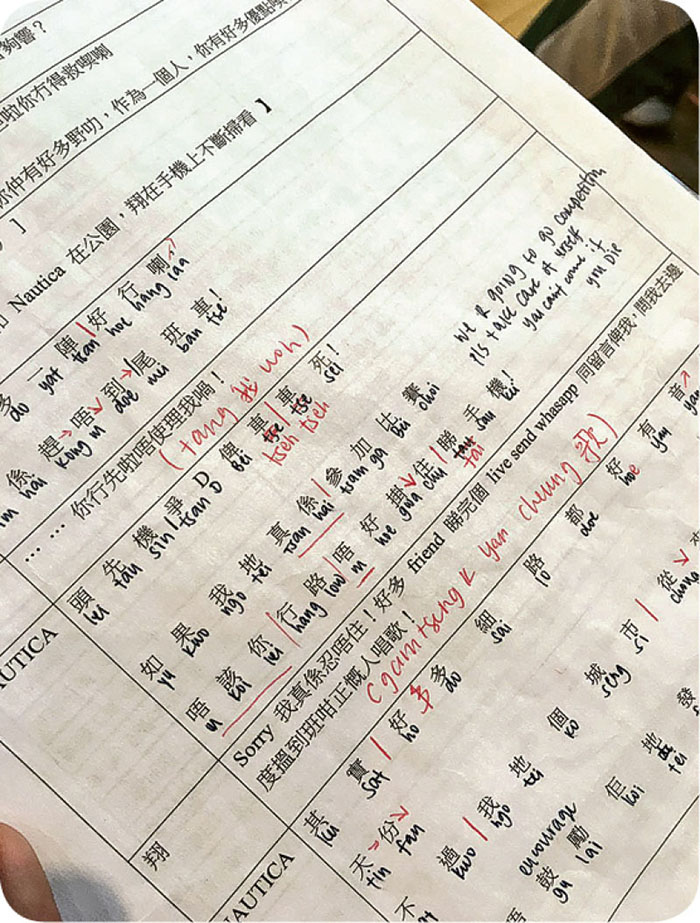 夠響？
啦你冇得救㗎喇
你仲有好多野叻，作為一個人，你有好多優點㗎
】
Nautica 在公園，翔在手機上不斷掃看 】
多 一 陣 | 好 行 喇
do yat tsan hoe hang laa
係 趕 唔 到 | 尾 班 車！
hai kong m doe mi ban tse
… … 你行先啦唔使理我喎！
(tang 我 woh)
AUTICA
頭 先 機 爭 D 俾 車 | 車 死！
tau sin tsan D bei tse tse sei
tseh tseh
如 果 我 地 真 係 | 參 加 比 賽
yu kwo ngo tei tsan hai tsam ga bei choi
we r going to go competition
pls take care of urself
you can't come if
you die
唔 該 你 | 行 路 | 唔 好 掛 住 | 睇 手 機！
m koi lei hang low m hoe gwa chu tai sau kei
tai
翔
Sorry 我真係忍唔住！好多 friend 睇完個 live send whasapp 同留言俾我，問我去邊
度搵到班咁正嘅人唱歌！
(gam tseng k yan cheung 歌)
NAUTICA
其 實 | 好 多 細 路 都 好 有 音
kei sat ho do sai lo doe hoe yau yam
天 份
tin fan
不 過 | 我 地 個 城 市 | 從
kwo ngo tei ko seng si chung
encourage
唔 鼓 勵 佢 地 發
gu lai koi tei